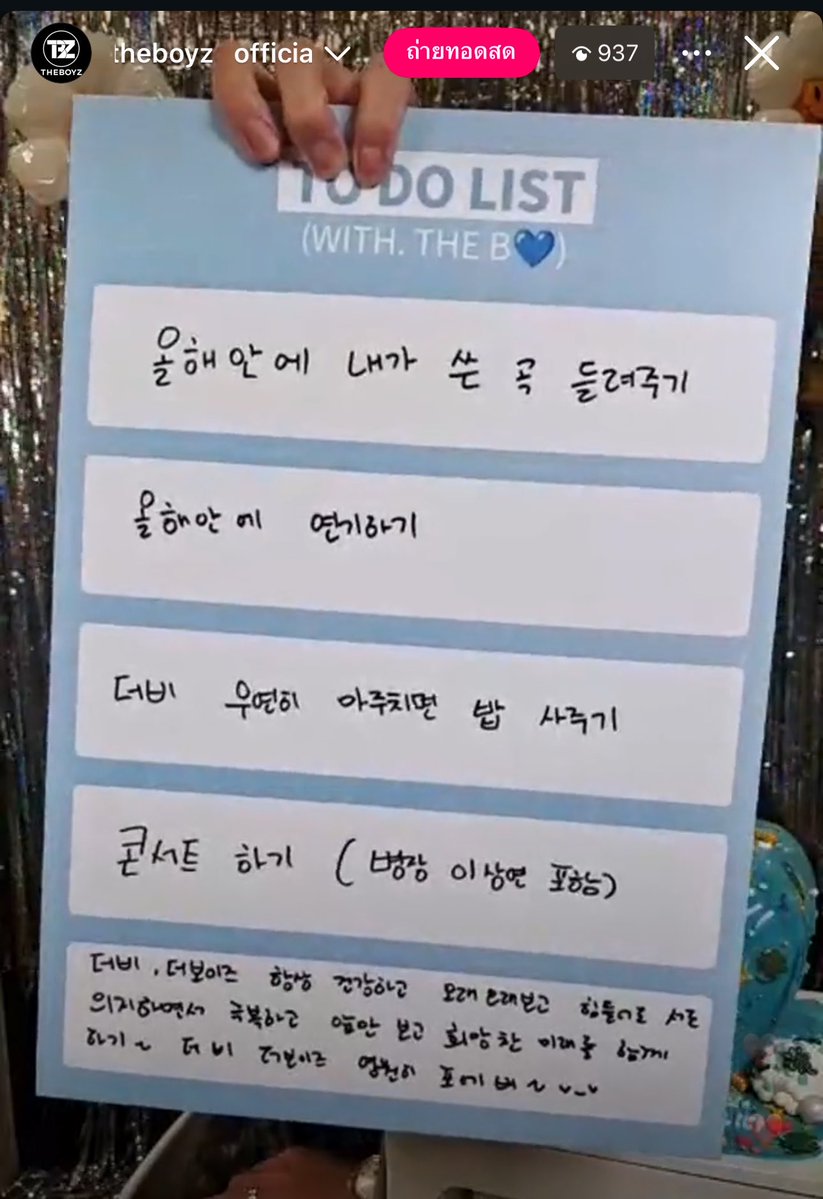 TBZ
THEBOYZ
theboyz officia
ถ่ายทอดสด
937
TO DO LIST
(WITH. THE B💙)
올해안에 내가 쓴 곡 들려주기
올해안에 연기하기
더비 우연히 마주치면 밥 사주기
콘서트 하기 (병장 이상연 포함)
더비, 더보이즈 항상 건강하고 오래오래보고 힘들어도 서로
의지하면서 극복하고 앞만 보고 희망찬 미래를 함께
하기~ 더비 더보이즈 영원히 포에버~ ᵕ_ᵕ